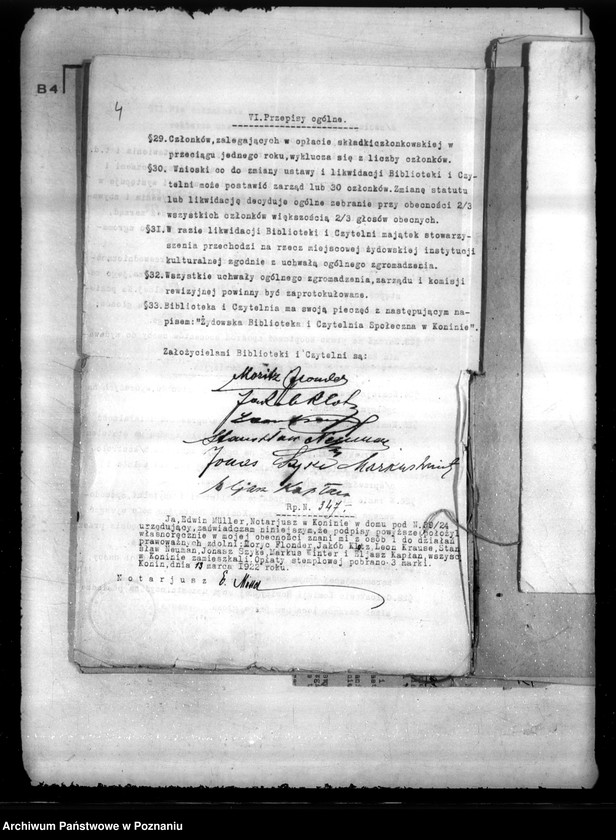 B4
4
VI.Przepisy ogólne.
§29.Członków,zalegających w opłacie składkiczłonkowskiej w
przeciągu jednego roku,wyklucza się z liczby członków.
§30. Wnioski co do zmiany ustawy i likwidacji Biblioteki i Czy-
telni może postawić zarząd lub 30 członków.Zmianę statutu
lub likwidację decyduje ogólne zebranie przy obecności 2/3
wszystkich członków większością 2/3 głosów obecnych.
§31. W razie likwidacji Biblioteki i Czytelni majątek stowarzy-
szenia przechodzi na rzecz miejscowej żydowskiej instytucji
kulturalnej zgodnie z uchwałą ogólnego zgromadzenia.
§32.Wszystkie uchwały ogólnego zgromadzenia,zarządu i komisji
rewizyjnej powinny być zaprotokułowane.
§33.Biblioteka i Czytelnia ma swoją pieczęć z następującym na-
pisem:"Żydowska Biblioteka i Czytelnia Społeczna w Koninie".
Założycielami Biblioteki i Czytelni są:
Moritz
Jakób Klotz
Leon Krause
Stanisław Neuman
Jonas Szyke Markus Winter
Eljasz Kapłan
Rp.N. 347.
Ja, Edwin Müller,Notarjusz w Koninie w domu pod N.29/24
urzędujący,zaświadczam niniejszym,że podpisy powyższe położyli
własnoręcznie w mojej obecności znani mi z osób i do działań
prawoważnych zdolni:Moryc Flonder,Jakób Klotz,Leon Krause,Stani
sław Neuman,Jonasz Szyke,Markus Winter i Eljasz Kapłan,wszyscy
w Koninie zamieszkali.Opłaty stemplowej pobrano 3 marki.
Konin,dnia 13 marca 1922 roku.
Notarjusz E.
Archiwum Państwowe w Poznaniu